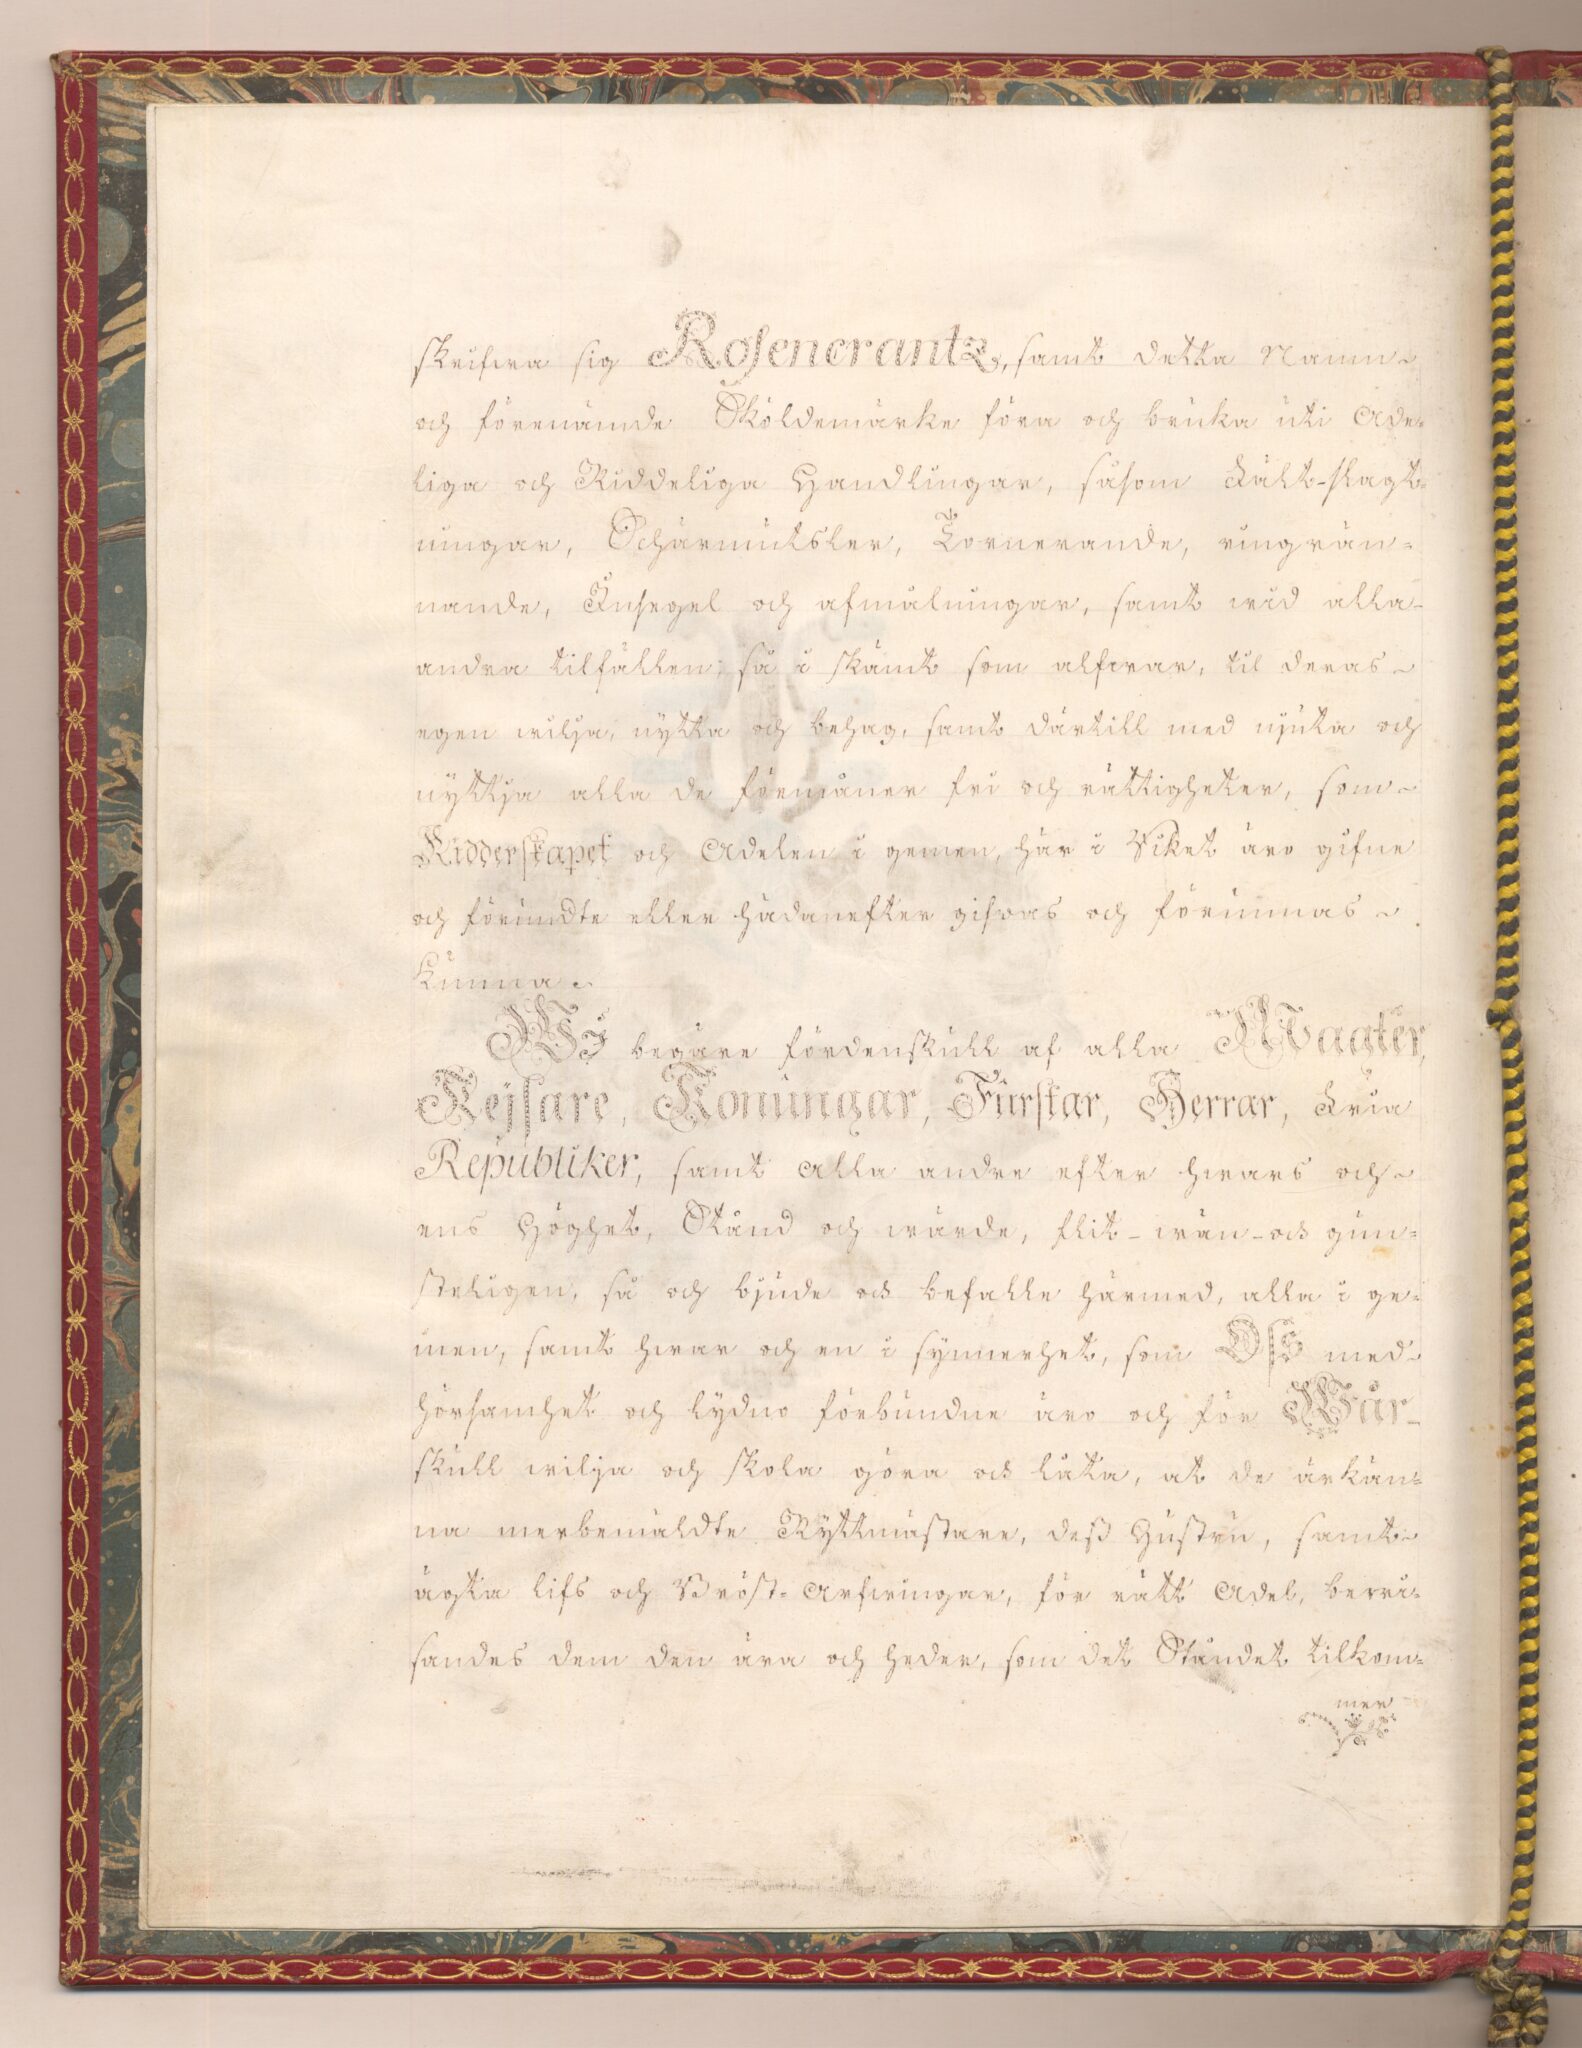 skrifwa sig Rosencrantz, samt detta Namn
och förenämde Sköldemärke föra och bruka uti Ade-
liga och Riddeliga Handlingar, såsom Fält-slagt-
ningar, Schärmütsler, Tornerande, ringrän-
nande, Insegel och afmålningar, samt wid alla
andra tilfällen, så i skämt som alfwar, til deras
egen wilja, nytta och behag, samt därtill med njuta och
nyttja alla de förmåner fri och rättigheter, som
Ridderskapet och Adelen i gemen, här i Riket äro gifne
och förundte eller hädanefter gifwas och förunnas
kunna.
Wi begäre fördenskull af alla Magter,
Keijsare, Konungar, Furstar, Herrar, Fria
Republiker, samt alla andre efter hwars och
ens Höghet, Stånd och wärde, flit-wän-och gun-
steligen, så och bjude och befalle härmed, alla i ge-
men, samt hwar och en i synnerhet, som Oss med
hörsamhet och lydno förbundne äro och för Wår
skull wilja och skola göra och låta, at de ärkän-
na merbemäldte Ryttmästare, deß Hustru, samt
ägta lifs och Bröst-Arfwingar, för rätt Adel, bewi-
sandes dem den ära och heder, som det Ståndet tilkom-
mer